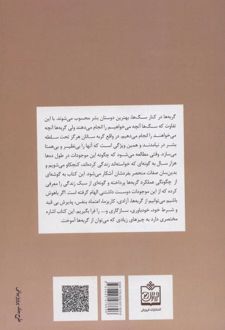 گربه‌ها در کنار سگ‌ها، بهترین دوستان بشر محسوب می‌شوند. با این
تفاوت که سگ‌ها آنچه می‌خواهیم را انجام می‌دهند ولی گربه‌ها آنچه
می‌خواهند را انجام می‌دهند. در واقع گربه سانان هرگز تحت سلطه
بشر در نیامدند و همین ویژگی است که آنها را بی‌نظیر و بی‌همتا
می‌سازد. وقتی مطالعه می‌شود که چگونه این موجودات در طول ده‌ها
هزار سال به گونه‌ای که خواسته‌اند زندگی کرده‌اند، کنجکاو می‌شویم و
بدین‌سان صفات منحصر بفردشان آشکار می‌شود. این کتاب به گوشه‌ای
از چگونگی عملکرد گربه‌ها پرداخته و گونه‌ای از سبک زندگی را معرفی
کرده که از این موجودات دوست داشتنی الهام گرفته است. اگر باهوش
باشیم می‌توانیم از گربه‌ها، آزادی، کاریزما، اعتماد بنفس، پذیرش بی قید
و شرط خود، خودباوری، سازگاری و... را فرا بگیریم. این کتاب اشاره
مختصری دارد به چیزهای زیادی که می‌توان از گربه‌ها آموخت